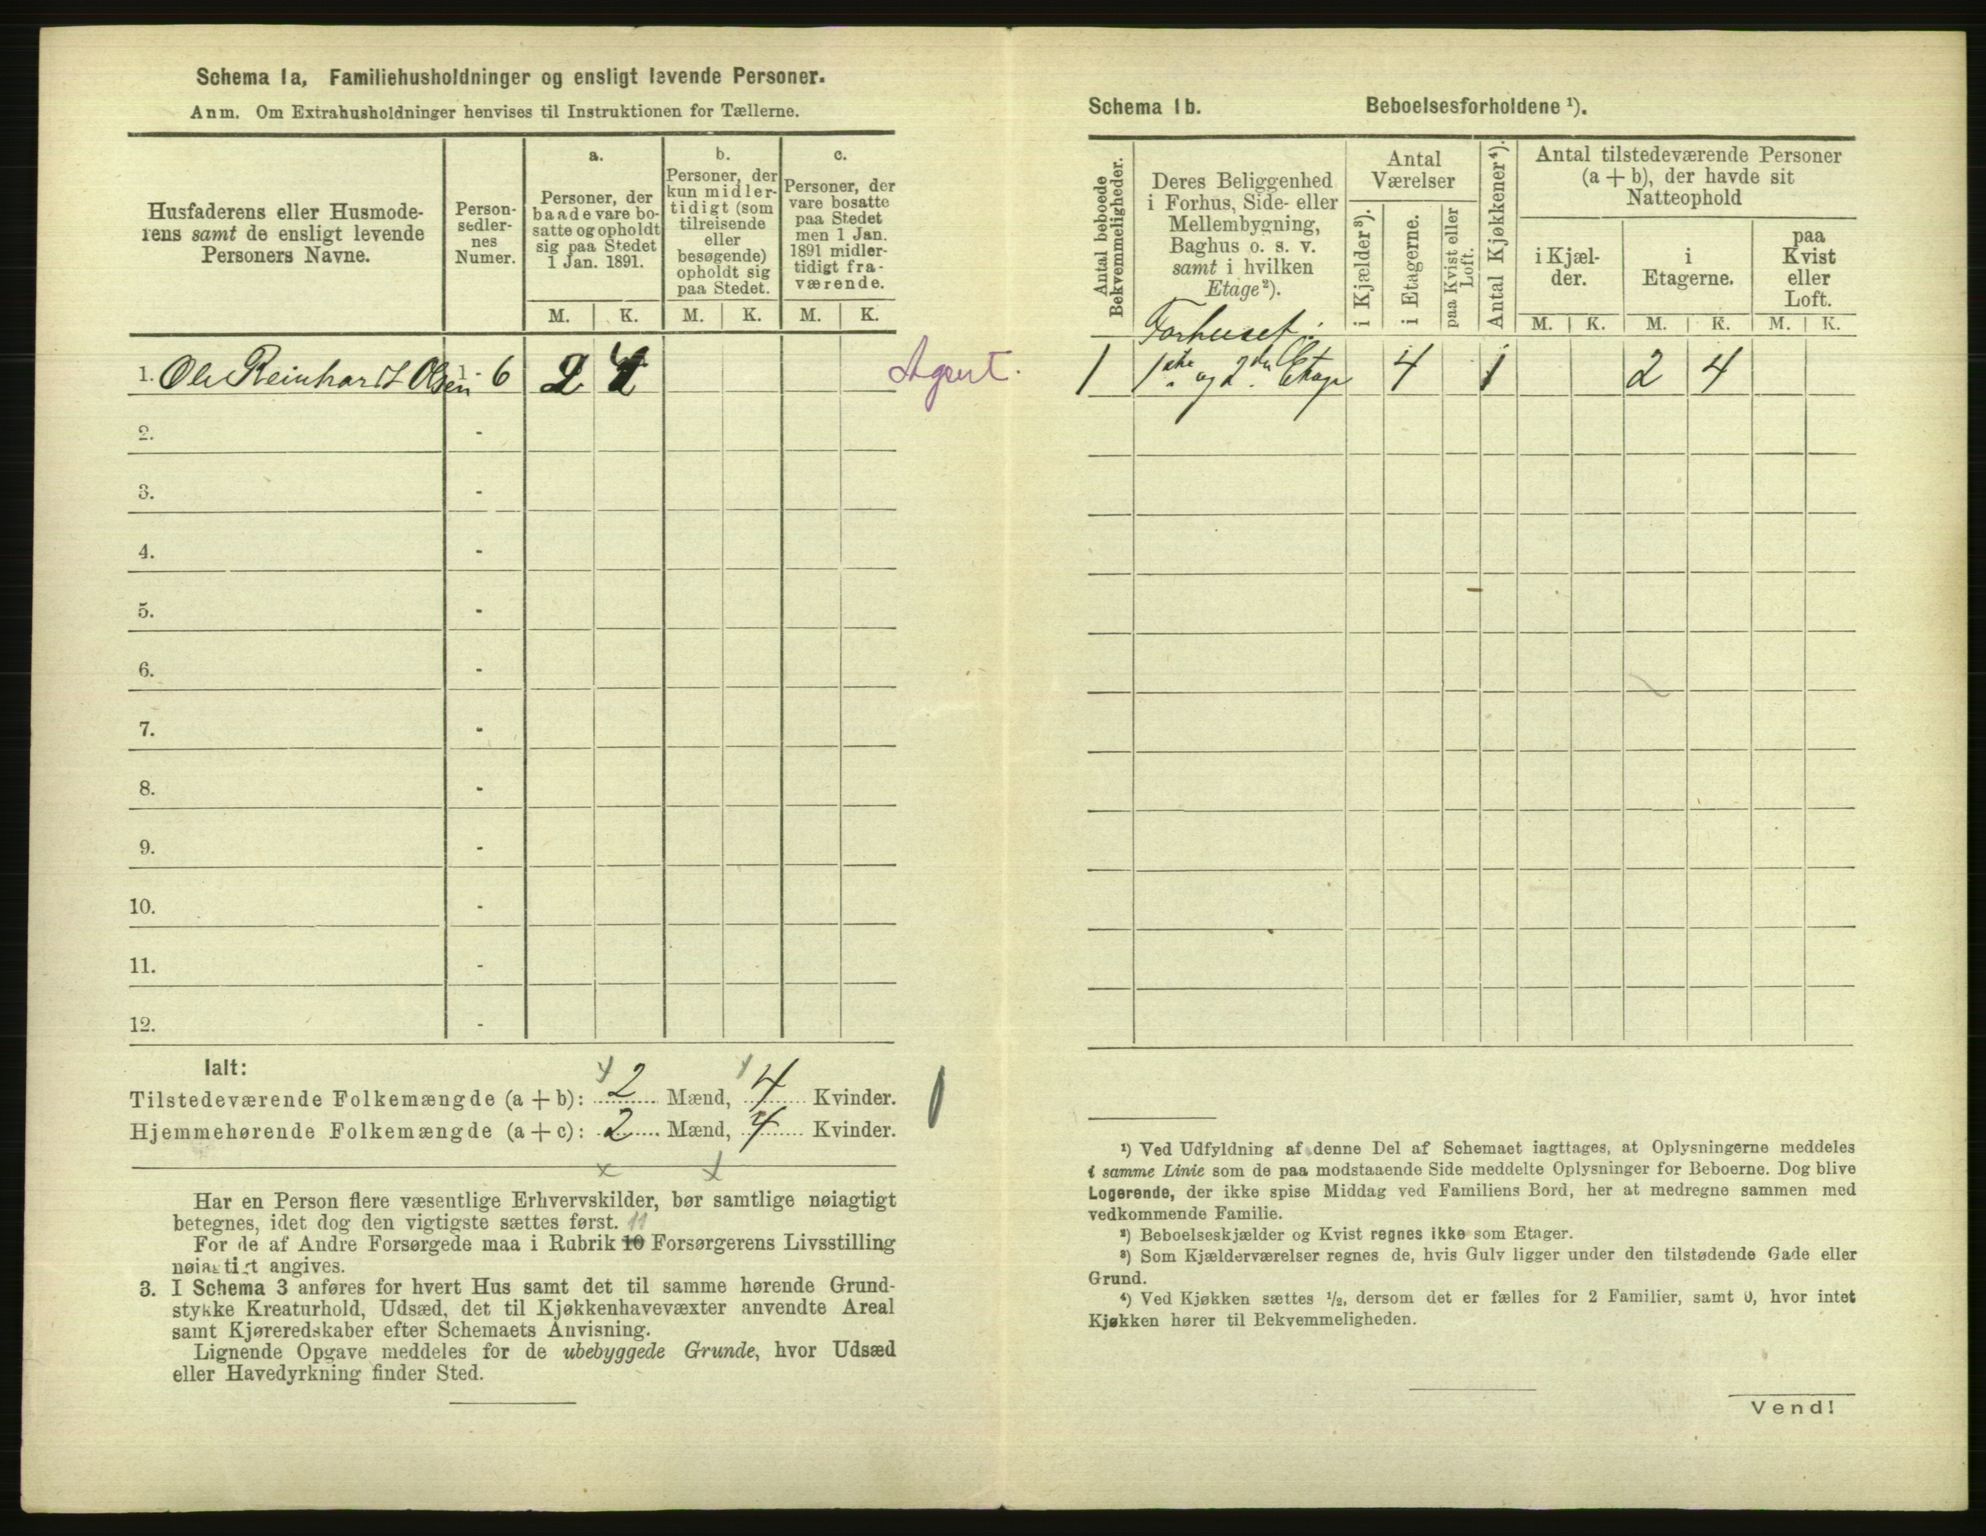 Schema 1a, Familiehusholdninger og ensligt levende Personer.
Anm. Om Extrahusholdninger henvises til Instruktionen for Tællerne.
Husfaderens eller Husmode-
rens samt de ensligt levende
Personers Navne.
Person-
sedler-
nes
Numer.
a.
Personer, der
baade vare bo-
satte og opholdt
sig paa Stedet
1 Jan. 1891.
b.
Personer, der
kun midler-
tidigt (som
tilreisende
eller
besøgende)
opholdt sig
paa Stedet.
c.
Personer, der
vare bosatte
paa Stedet
men 1 Jan.
1891 midler-
tidigt fra-
værende.
M. K. M. K. M. K.
1. Ole Reinhardt Olsen 1 - 6 2 4
2. -
3. -
4. -
5. -
6. -
7. -
8. -
9. -
10. -
11. -
12. -
Ialt:
Tilstedeværende Folkemængde (a + b): 2 Mænd, 4 Kvinder.
Hjemmehørende Folkemængde (a + c): 2 Mænd, 4 Kvinder.
Har en Person flere væsentlige Erhvervskilder, bør samtlige nøiagtigt
betegnes, idet dog den vigtigste sættes først. 11
For de af Andre Forsørgede maa i Rubrik 10 Forsørgerens Livsstilling
nøiagtigt angives.
3. I Schema 3 anføres for hvert Hus samt det til samme hørende Grund-
stykke Kreaturhold, Udsæd, det til Kjøkkenhavevæxter anvendte Areal
samt Kjøreredskaber efter Schemaets Anvisning.
Lignende Opgave meddeles for de ubebyggede Grunde, hvor Udsæd
eller Havedyrkning finder Sted.
Schema 1b. Beboelsesforholdene ¹).
Antal beboede
Bekvemmeligheder.
Deres Beliggenhed
i Forhus, Side- eller
Mellembygning,
Baghus o. s. v.
samt i hvilken
Etage²).
Antal
Værelser
i Kjælder³).
i Etagerne.
paa Kvist eller
Loft.
Antal Kjøkkener⁴).
Antal tilstedeværende Personer
(a + b), der havde sit
Natteophold
i Kjæl-
der.
i
Etagerne.
paa
Kvist
eller
Loft.
M. K. M. K. M. K.
Forhuset
1 1ste og 2den Etage 4 1 2 4
¹) Ved Udfyldning af denne Del af Schemaet iagttages, at Oplysningerne meddeles
i samme Linie som de paa modstaaende Side meddelte Oplysninger for Beboerne. Dog blive
Logerende, der ikke spise Middag ved Familiens Bord, her at medregne sammen med
vedkommende Familie.
²) Beboelseskjælder og Kvist regnes ikke som Etager.
³) Som Kjælderværelser regnes de, hvis Gulv ligger under den tilstødende Gade eller
Grund.
⁴) Ved Kjøkken sættes ½, dersom det er fælles for 2 Familier, samt 0, hvor intet
Kjøkken hører til Bekvemmeligheden.
Vend!